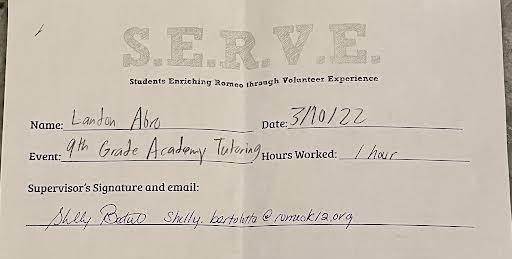 S.E.R.V.E.
Students Enriching Romeo through Volunteer Experience
Name: Landon Abro Date: 3/10/22
Event: 9th Grade Academy Tutoring Hours Worked: 1 hour
Supervisor's Signature and email:
Shelly shelly.bartolotta@romeok12.org